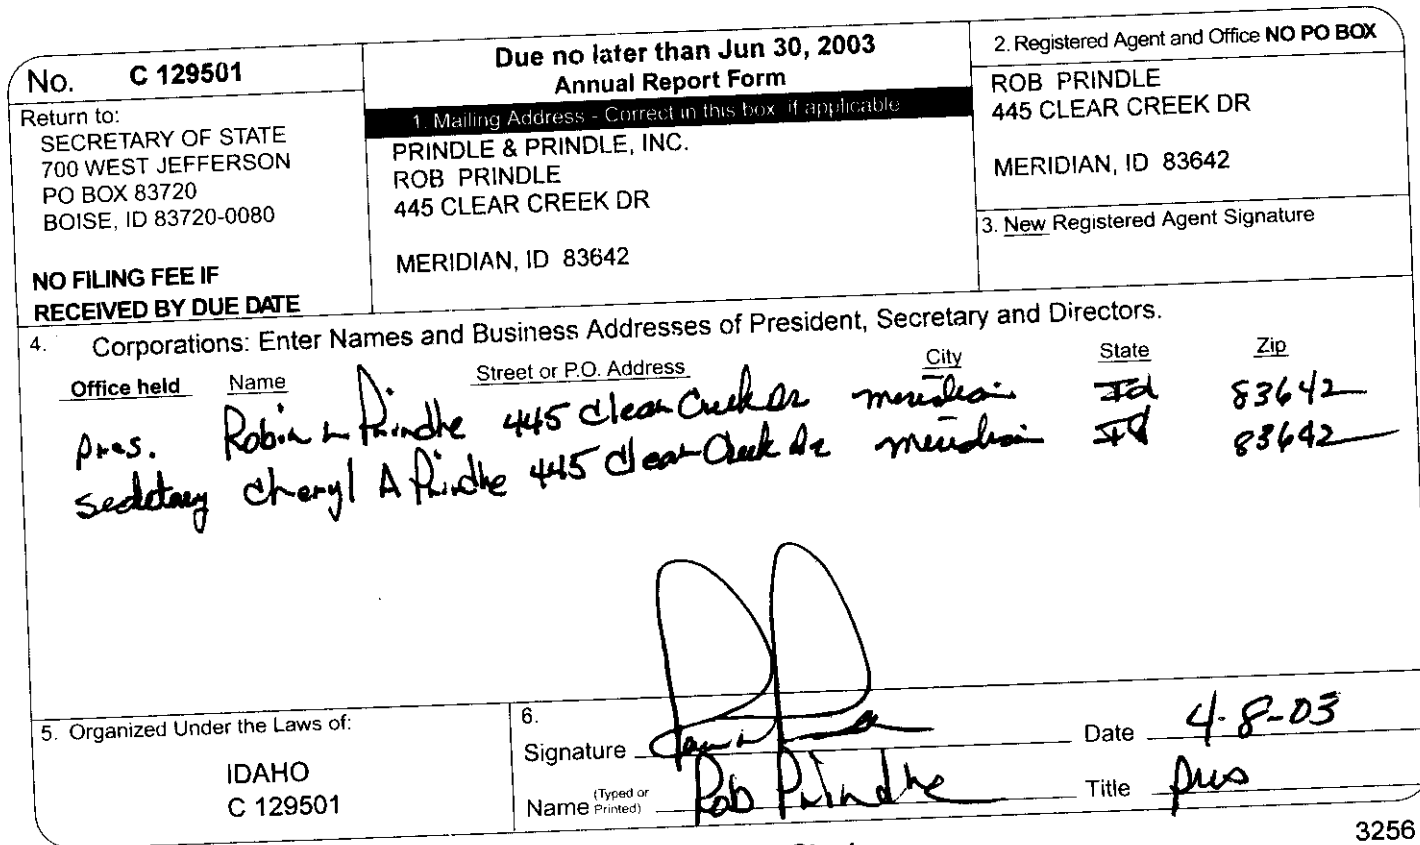 No. C 129501
Return to:
SECRETARY OF STATE
700 WEST JEFFERSON
PO BOX 83720
BOISE, ID 83720-0080
NO FILING FEE IF
RECEIVED BY DUE DATE
Due no later than Jun 30, 2003
Annual Report Form
1. Mailing Address - Correct in this box if applicable
PRINDLE & PRINDLE, INC.
ROB PRINDLE
445 CLEAR CREEK DR
MERIDIAN, ID 83642
2. Registered Agent and Office NO PO BOX
ROB PRINDLE
445 CLEAR CREEK DR
MERIDIAN, ID 83642
3. New Registered Agent Signature
4. Corporations: Enter Names and Business Addresses of President, Secretary and Directors.
Office held Name Street or P.O. Address City State Zip
pres. Robin L Prindle 445 Clear Creek Dr meridian Id 83642
secretary Cheryl A Prindle 445 Clear Creek Dr meridian Id 83642
5. Organized Under the Laws of:
IDAHO
C 129501
6.
Signature Date 4-8-03
Name (Typed or Printed) Rob Prindle Title pres
3256